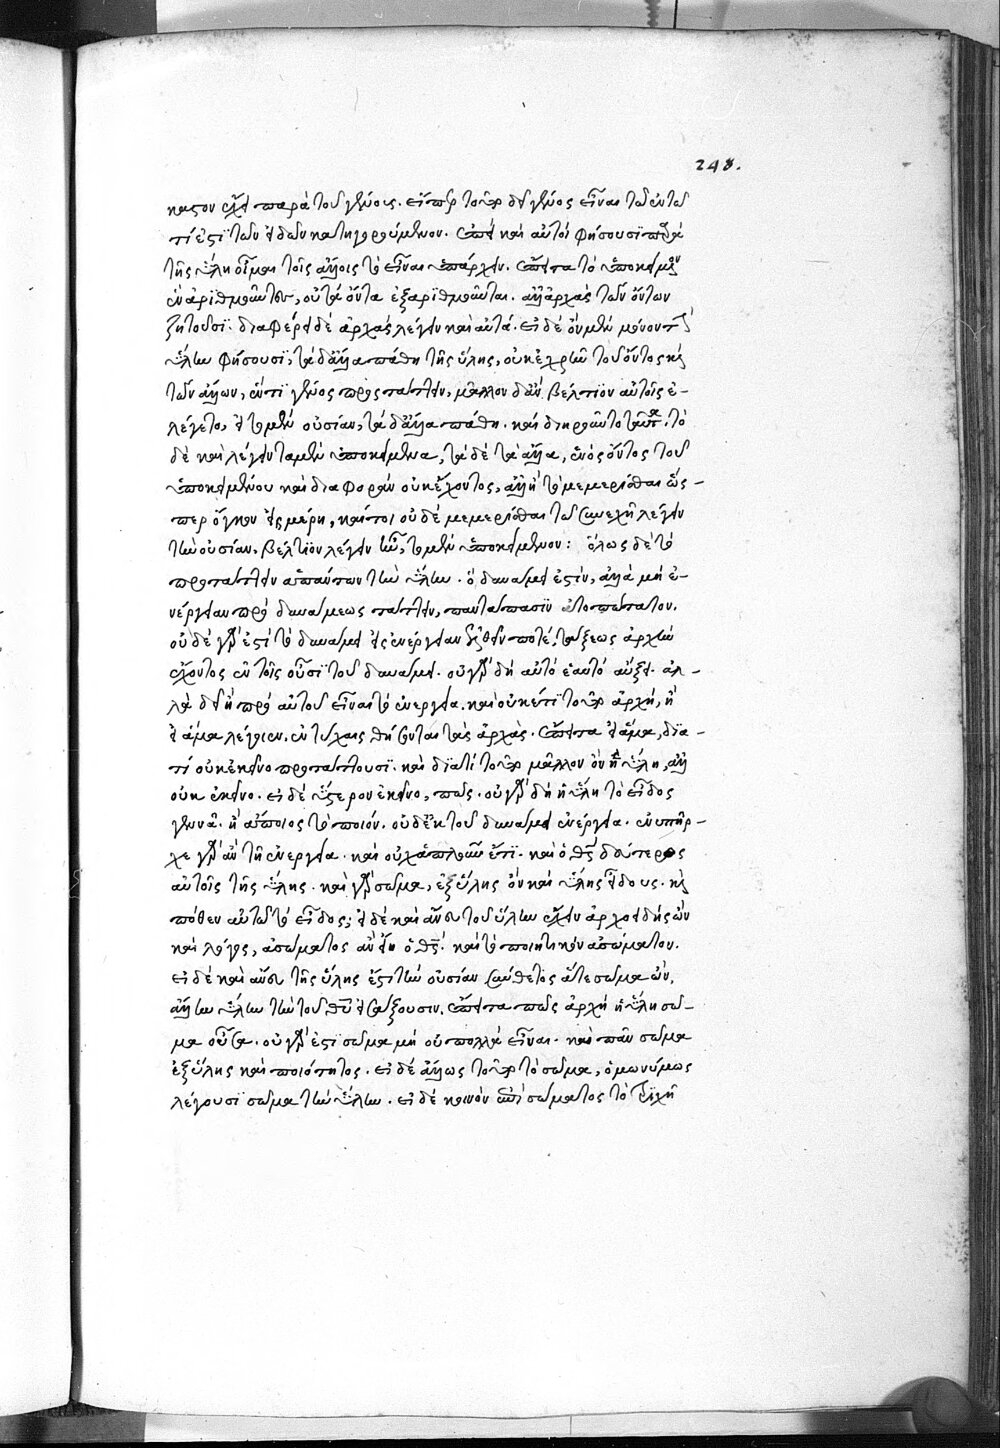 248.
καστον ἔχει παρὰ τοῦ γένους. εἴπερ τοῦτο δεῖ γένος εἶναι τὸ ἐν τῶ
τί ἐστι τῶν εἰδῶν κατηγορούμενον. ἐπεὶ καὶ αὐτοὶ φήσουσι παρὰ
τῆς ὕλης οἶμαι τοῖς ἄλλοις τὸ εἶναι ὑπάρχειν. ἔπειτα τὸ ὑποκείμενον
ἓν ἀριθμοῦντες, οὐ τὰ ὄντα ἐξαριθμοῦνται. ἀλλ' ἀρχὰς τῶν ὄντων
ζητοῦσι. διαφέρει δὲ ἀρχὰς λέγειν καὶ αὐτά. εἰ δὲ ὂν μὲν μόνον τὴν
ὕλην φήσουσι, τὰ δ' ἄλλα πάθη τῆς ὕλης, οὐκ ἐχρῆν τοῦ ὄντος καὶ
τῶν ἄλλων, ἕν τι γένος προστάττειν, μᾶλλον δ' ἂν βέλτιον αὐτοῖς ἐ-
λέγετο, εἰ τὸ μὲν οὐσίαν, τὰ δ' ἄλλα πάθη. καὶ διηροῦντο ταῦτα. τὸ
δὲ καὶ λέγειν τὰ μὲν ὑποκείμενα, τὰ δὲ τὰ ἄλλα, ἑνὸς ὄντος τοῦ
ὑποκειμένου καὶ διαφορὰν οὐκ ἔχοντος, ἀλλ' ἢ τὸ μεμερίσθαι ὥσ-
περ ὄγκον εἰς μέρη, καίτοι οὐδὲ μεμερίσθαι τῶ συνεχῆ λέγειν
τὴν οὐσίαν. βέλτιον λέγειν ἦν, τὸ μὲν ὑποκείμενον: ὅλως δὲ τὸ
προτάττειν ἁπάντων τὴν ὕλην. ὃ δυνάμει ἐστίν, ἀλλὰ μὴ ἐ-
νέργειαν πρὸ δυνάμεως τάττειν, παντάπασιν ἀτοπώτατον.
οὐδὲ γὰρ ἔστι τὸ δυνάμει εἰς ἐνέργειαν ἐλθεῖν ποτὲ, τάξεως ἀρχὴν
ἔχοντος ἐν τοῖς οὖσι τοῦ δυνάμει. οὐ γὰρ δὴ αὐτὸ ἑαυτὸ ἄξει. ἀλ-
λὰ δεῖ ἢ πρὸ αὐτοῦ εἶναι τὸ ἐνεργεία. καὶ οὐκέτι τοῦτο ἀρχὴ, ἢ
εἰ ἅμα λέγοιεν, ἐν τύχαις θήσονται τὰς ἀρχάς. ἔπειτα εἰ ἅμα, δια-
τί οὐκ ἐκεῖνο προτάττουσι. καὶ διατί τοῦτο μᾶλλον ὂν ἡ ὕλη, ἀλλ'
οὐκ ἐκεῖνο. εἰ δὲ ὕστερον ἐκεῖνο, πῶς. οὐ γὰρ δὴ ἡ ὕλη τὸ εἶδος
γεννᾶ. ἡ ἄποιος τὸ ποιόν. οὐδ' ἐκ τοῦ δυνάμει ἐνέργεια. ἐνυπῆρ-
χε γὰρ ἂν τὸ ἐνεργεία. καὶ οὐχ ἁπλοῦν ἔτι. καὶ ὁ θεὸς δεύτερος
αὐτοῖς τῆς ὕλης. καὶ γὰρ σῶμα, ἐξ ὕλης ὂν καὶ ὕλης εἴδους. καὶ
πόθεν αὐτῶ τὸ εἶδος; εἰ δὲ καὶ ἄνευ τοῦ ὕλην ἔχειν ἀρχοειδὴς ὢν
καὶ λόγος, ἀσώματος ἂν εἴη ὁ θεός. καὶ τὸ ποιητικὸν ἀσώματον.
εἰ δὲ καὶ ἄνευ τῆς ὕλης ἐστὶ τὴν οὐσίαν σύνθετος ἅτε σῶμα ὢν,
ἄλλην ὕλην τὴν τοῦ θεοῦ εἰσάξουσιν. ἔπειτα πῶς ἀρχὴ ἡ ὕλη σῶ-
μα οὖσα. οὐ γὰρ ἔστι σῶμα μὴ οὐ πολλὰ εἶναι. καὶ πᾶν σῶμα
ἐξ ὕλης καὶ ποιότητος. εἰ δὲ ἄλλως τοῦτο τὸ σῶμα, ὁμωνύμως
λέγουσι σῶμα τὴν ὕλην. εἰ δὲ κοινὸν ἐπὶ σώματος τὸ τριχῆ